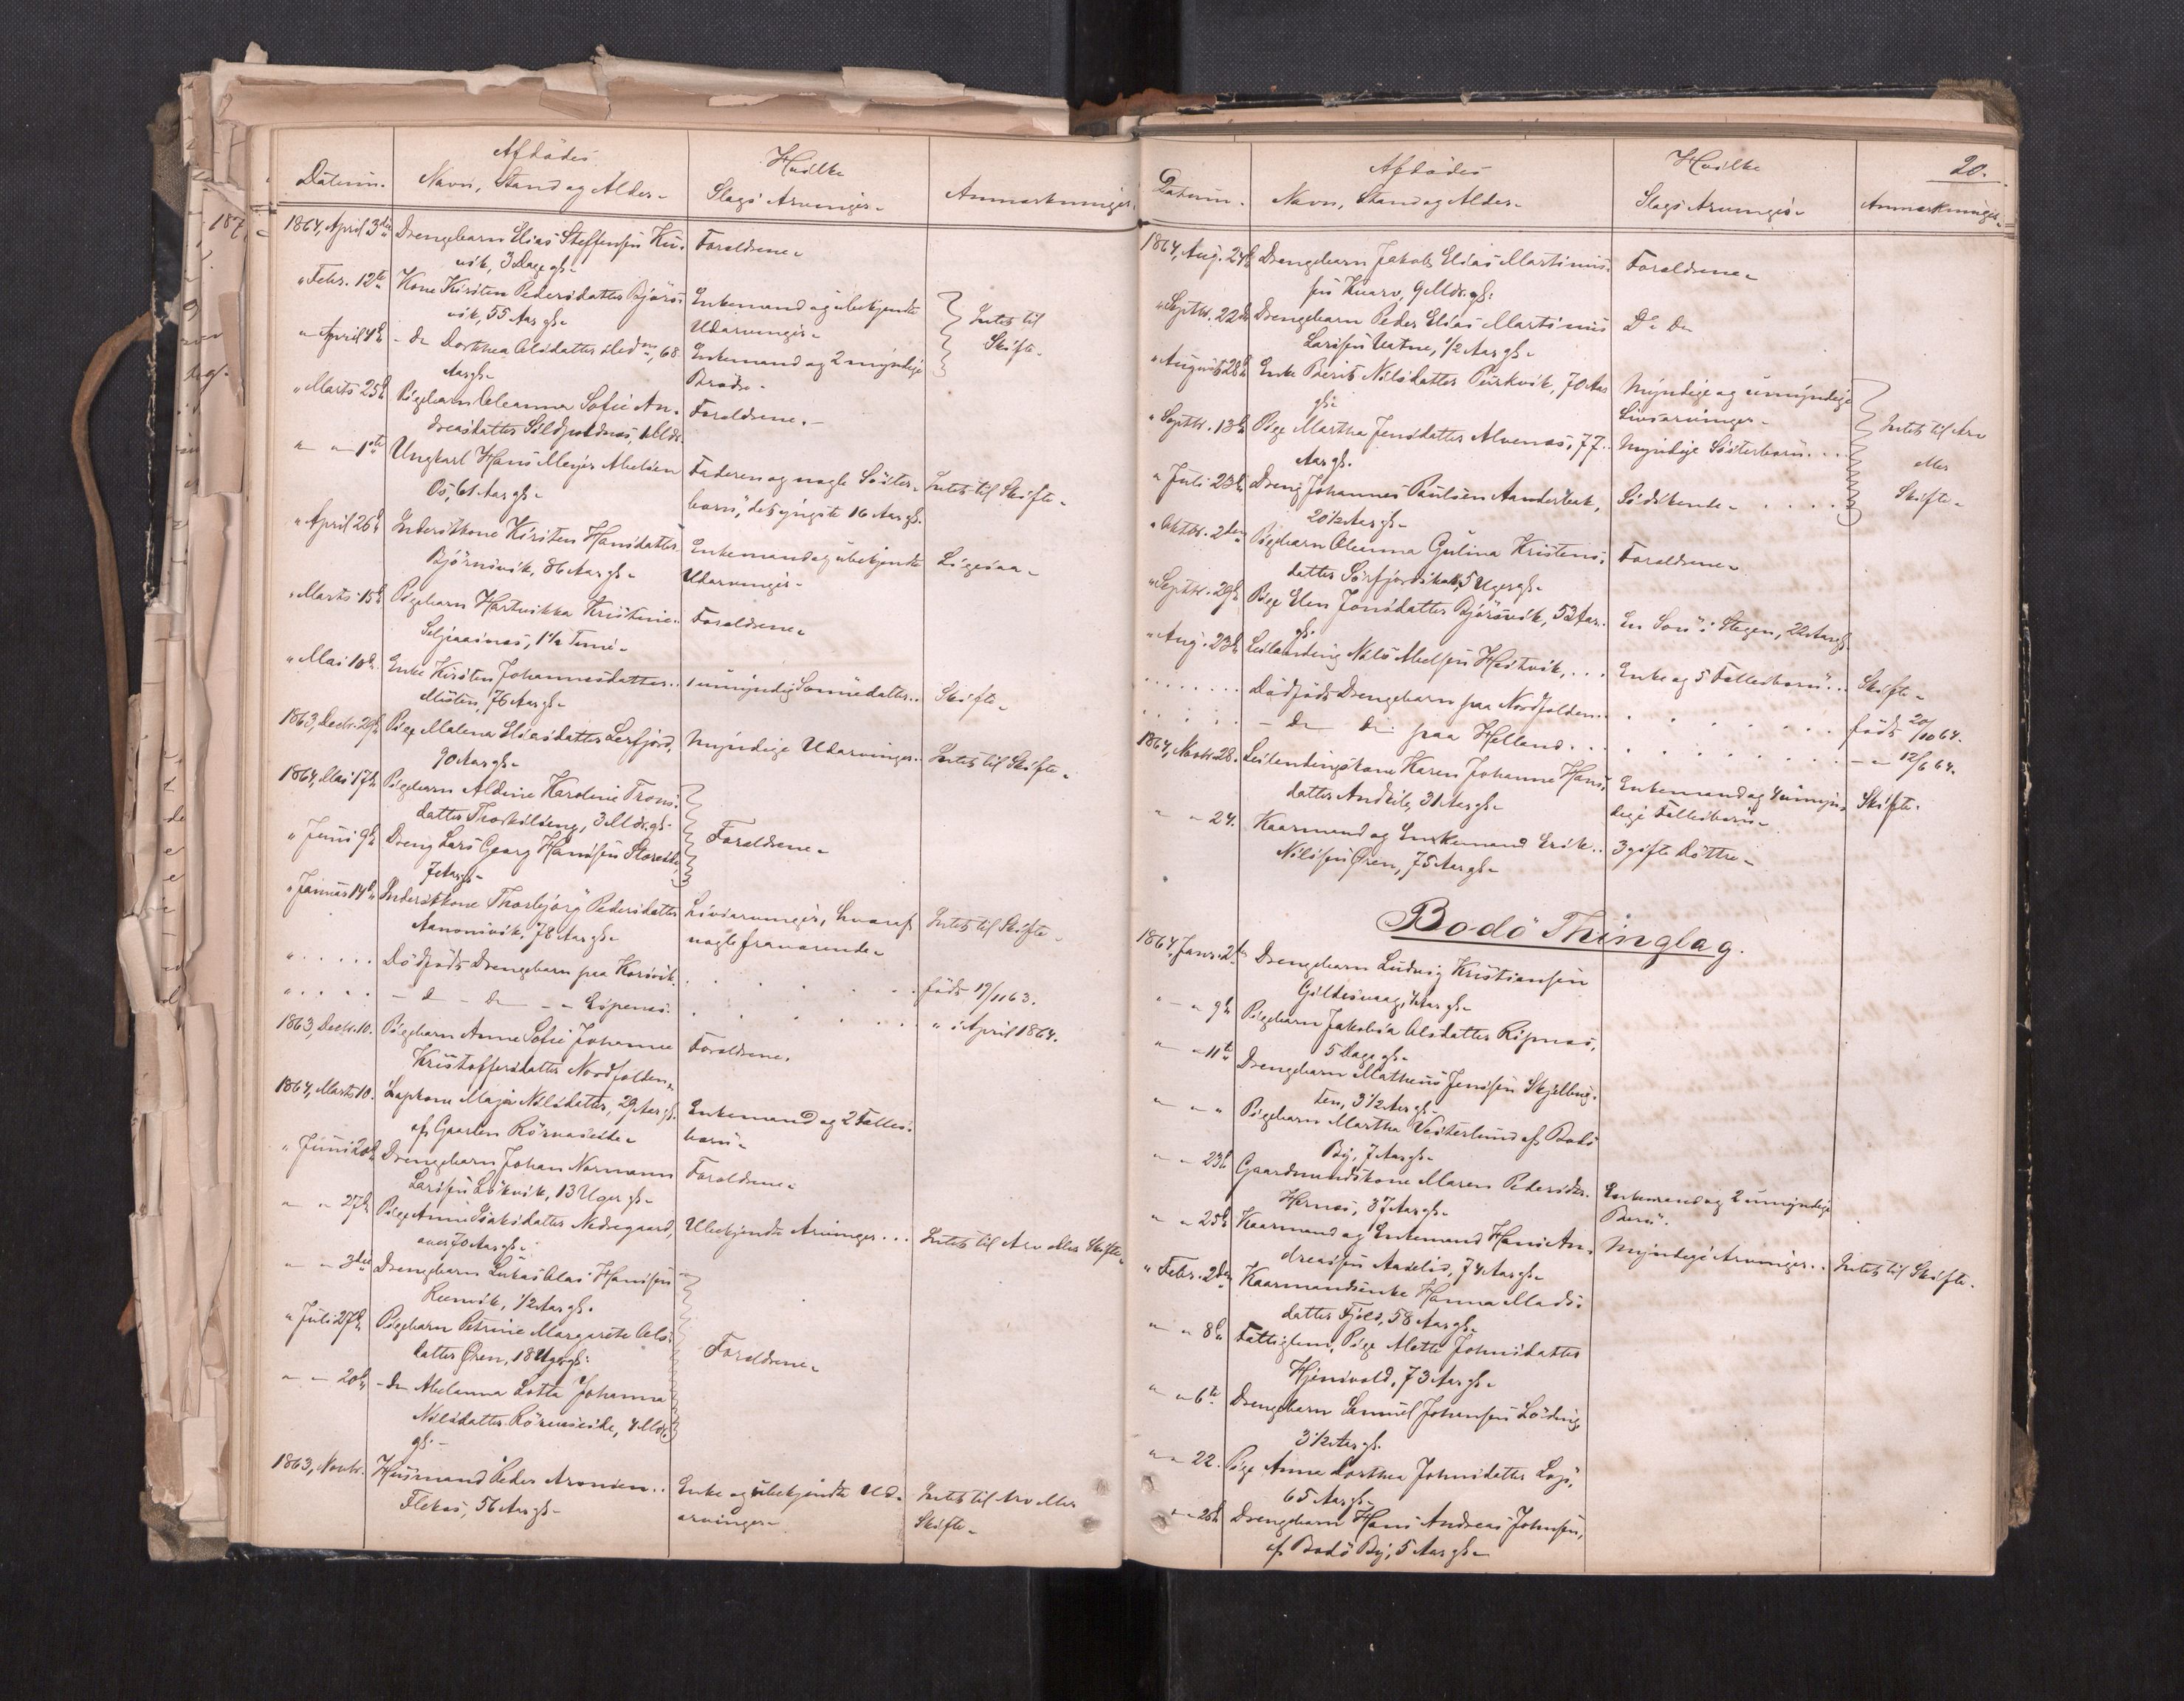 Afdödes
Hvilke
Datum.
Navn, Stand og Alder.
Slags Arvinger.
Anmærkninger.
1864, April 3die
Drengebarn Elias Steffensen
vik, 3 Dage gl.
Forældrene.
" Febr. 12te
Kone Kirsten Pedersdatter
vik, 55 Aar gl.
Enkemand og ubekjendte
Udarvinger.
Intet til
Skifte.
" April 4de
- do Dorthea Olsdatter 68
Aar gl.
Enkemand og 2 myndige
Brödre.
" Marts 25de
Pigebarn Oleanna Sofie An-
dreasdatter
Forældrene.
" " 1ste
Ungkarl Hans Meyer
Os, 61 Aar gl.
Faderen og nogle Söster-
børn, det yngste 16 Aar gl.
Intet til Skifte.
" April 26de
Inderstkone Kirsten Hansdatter
Björnsvik, 86 Aar gl.
Enkemand og ubekjendte
Udarvinger.
Ligesaa.
" Marts 15de
Pigebarn Hartvikka Kristine
1½ Time.
Forældrene.
" Mai 10de
Enke Kirsten Johannesdatter
76 Aar gl.
1 umyndig Sönnedatter
Skifte.
1863, Decbr. 29de
Pige Malena Eliasdatter Leirfjord,
90 Aar gl.
Myndige Udarvinger.
Intet til Skifte.
1864, Mai 17de
Pigebarn Aldine Karoline Trons-
datter 3 Mdr. gl.
" Juni 9de
Dreng Lars Georg Hansen
7 Aar gl.
Forældrene.
" Januar 14de
Inderstkone Thorbjörg Pedersdatter
78 Aar gl.
Livsarvinger, hvoraf
nogle fraværende.
Intet til Skifte.
" . . . . .
Dödfödt Drengebarn paa Korsvik.
födt 19/11 63.
" . . . .
- d - do - " Espenes.
" i April 1864.
1863, Decbr. 10.
Pigebarn Anne Sofie Johanne
Kristoffersdatter Nordfolden.
Forældrene.
1864, Marts 10.
Lapkone Maja Nilsdatter, 29 Aar gl.
af Gaarden
Enkemand og 2 Fælles-
børn.
" Juni 20de
Drengebarn Johan Normann
Larsen Lökvik, 13 Uger gl.
Forældrene.
" " 27de
Pige Anne Isaksdatter Nedregaard,
over 70 Aar gl.
Ubekjendte Arvinger . . .
Intet til Arv eller Skifte.
" " 3die
Drengebarn Lukas Olai Hansen
½ Aar gl.
" Juli 27de
Pigebarn Petrine Margarete Ols-
datter Øren, 18 Uger gl.
Forældrene.
" " 20de
- do Lotta Johanna
Nilsdatter 4 Mdr.
gl.
1863, Novbr.
Husmand Peder Aronsen . .
56 Aar gl.
Enke og ubekjendte Ud-
arvinger.
Intet til Arv eller
Skifte.
20.
Afdödes
Hvilke
Datum.
Navn, Stand og Alder.
Slags Arvinger.
Anmærkninger.
1864, Aug. 24de
Drengebarn Jakob Elias Martinus-
sen 9 Mdr. gl.
Forældrene.
" Septbr. 22de
Drengebarn Peder Elias Martinus
Larsen Vatne, ½ Aar gl.
Do Do
" August 28de
Enke Berit Nilsdatter 70 Aar
gl.
Myndige og umyndige
Livsarvinger.
" Septbr. 13de
Pige Martha Jensdatter Alvenes, 77
Aar gl.
Myndige Sösterbörn . . .
Intet til Arv
eller
Skifte.
" Juli 23de
Dreng Johannes Paulsen
20½ Aar gl.
Södskende. . . . .
" Oktbr. 2den
Pigebarn Oleanna Gulina Kristens-
datter 5 Uger gl.
Forældrene.
" Septbr. 29de
Pige Elen Jonsdatter 53 Aar
gl.
En Sön i Stegen, 22 Aar gl.
" Aug. 23de
Leilænding Nils . . .
Enke og 5 Fællesbörn . . .
Skifte.
. . . . . . .
Dödfödt Drengebarn paa Nordfolden.
födt 20/10 64.
. . . . .
- do do paa Helland . .
- " 12/6 64.
1864, Novbr. 28.
Leilendingskone Karen Johanne Hans-
datter 31 Aar gl.
Enkemand og 4 umyn-
dige Fællesbörn.
Skifte.
" " 24.
Kaarmand og Enkemand Erik
Nilsen Øren, 75 Aar gl.
3 gifte Döttre.
Bodö Thinglag.
1864, Janr. 2den
Drengebarn Ludvig Kristiansen
Gildesvaag,
" " 9de
Pigebarn Jakobia Olsdatter Ripnes,
5 Dage gl.
" " 11te
Drengebarn Matheus Jensen Skjelbug-
ten, 3½ Aar gl.
" " "
Pigebarn Martha Vesterlund af Bodö
By, 7 Aar gl.
" " 23de
Gaardmandskone Maren Pedersdtr.
Hernes, 37 Aar gl.
Enkemand og 2 umyndige
Börn.
" " 25de
Kaarmand og Enkemand Hans An-
dreassen 74 Aar gl.
Myndige Arvinger . .
Intet til Skifte.
" Febr. 2den
Kaarmandsenke Hanna Mads-
datter 58 Aar gl.
" " 8de
Fattiglem, Pige Mette Johnsdatter
73 Aar gl.
" " 6te
Drengebarn Samuel Johansen Löding
3½ Aar gl.
" " 22.
Pige Anne Dorthea Johnsdatter
65 Aar gl.
" " 25de
Drengebarn Hans Andreas Johnsen,
af Bodö By, 5 Aar gl.